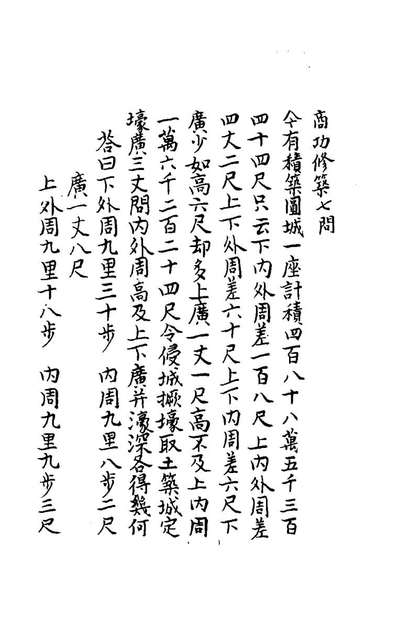 商功修築七問
今有積築圓城一座計積四百八十八萬五千三百
四十四尺只云下內外周差一百八尺上內外周差
四丈二尺上下外周差六十尺上下內周差六尺下
廣少如高六尺却多上廣一丈一尺高不及上內周
一萬六千二百二十四尺令侵城撅壕取土築城定
壕廣三丈問內外周高及上下廣并濠深各得幾何
荅曰下外周九里三十步　內周九里八步二尺
廣一丈八尺
上外周九里十八步　內周九里九步三尺